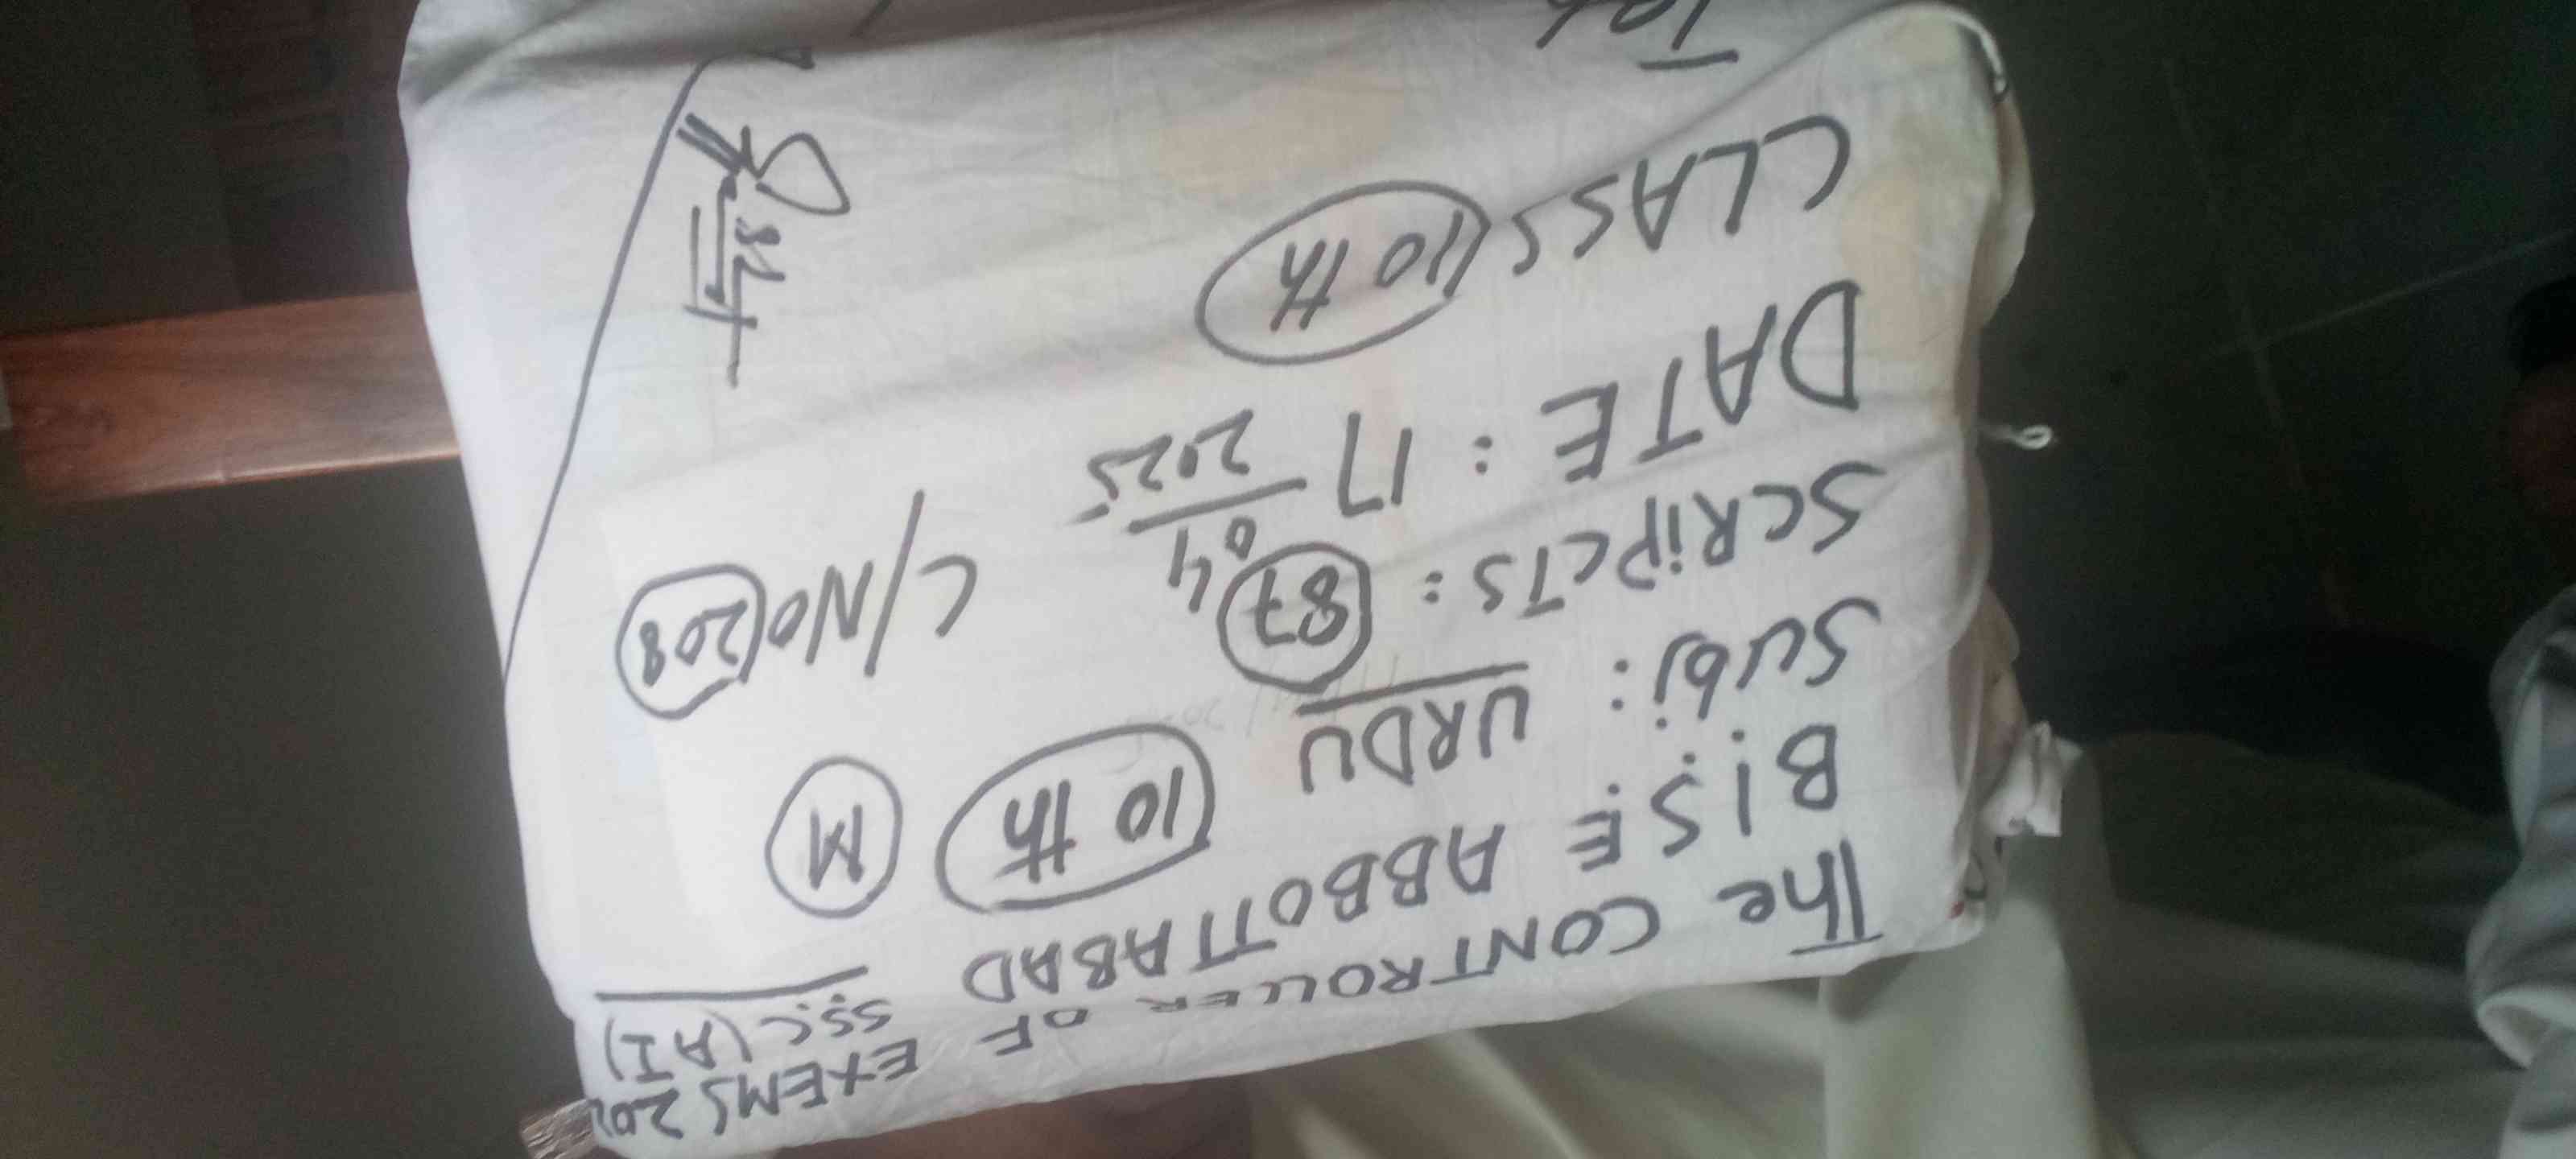 The CONTROLLER OF EXEMS 202
SSC (AI)
B.I.S.E ABBOTTABAD
Subj: URDU 10 th M
SCRiPCTS: 87 C/NO 208
DATE: 17 04 2025
CLASS 10 th